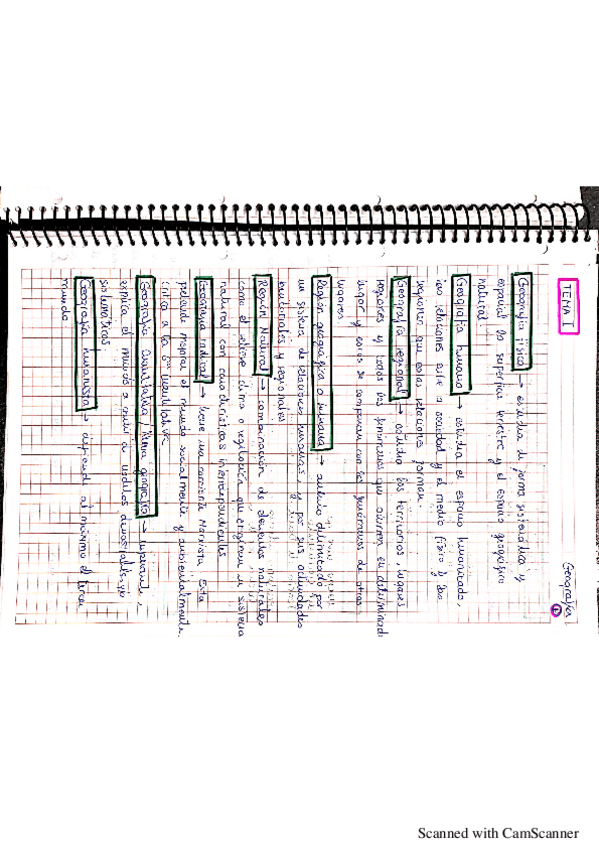 Geografía
1
TEMA I
Geografía física → estudia de forma sistemática y
espacial la superficie terrestre y el espacio geográfico
natural.
Geografía humana → estudia el espacio humanizado,
las relaciones entre la sociedad y el medio físico y las
regiones que estas relaciones forman.
Geografía regional → estudia los territorios, lugares
regiones y todos los fenómenos que ocurren en determinado
lugar y estos se comparan con los fenómenos de otros
lugares.
Región geográfica o humana → delimitado por
un sistema de relaciones humanas, y por sus actividades
y regionales
Región Natural → combinación de elementos naturales
como el relieve clima o vegetación que engloban un sistema
natural con características interdependientes
Geografía radical → tiene una corriente Marxista. Esta
pretende mejorar el mundo socialmente y sustancialmente.
Crítica a la Gª cuantitativa.
Geografía Cuantitativa / Nueva geografía →
explica el mundo a través de modelos
sistemáticos.
Geografía humanista → al máximo el
mundo
Scanned with CamScanner